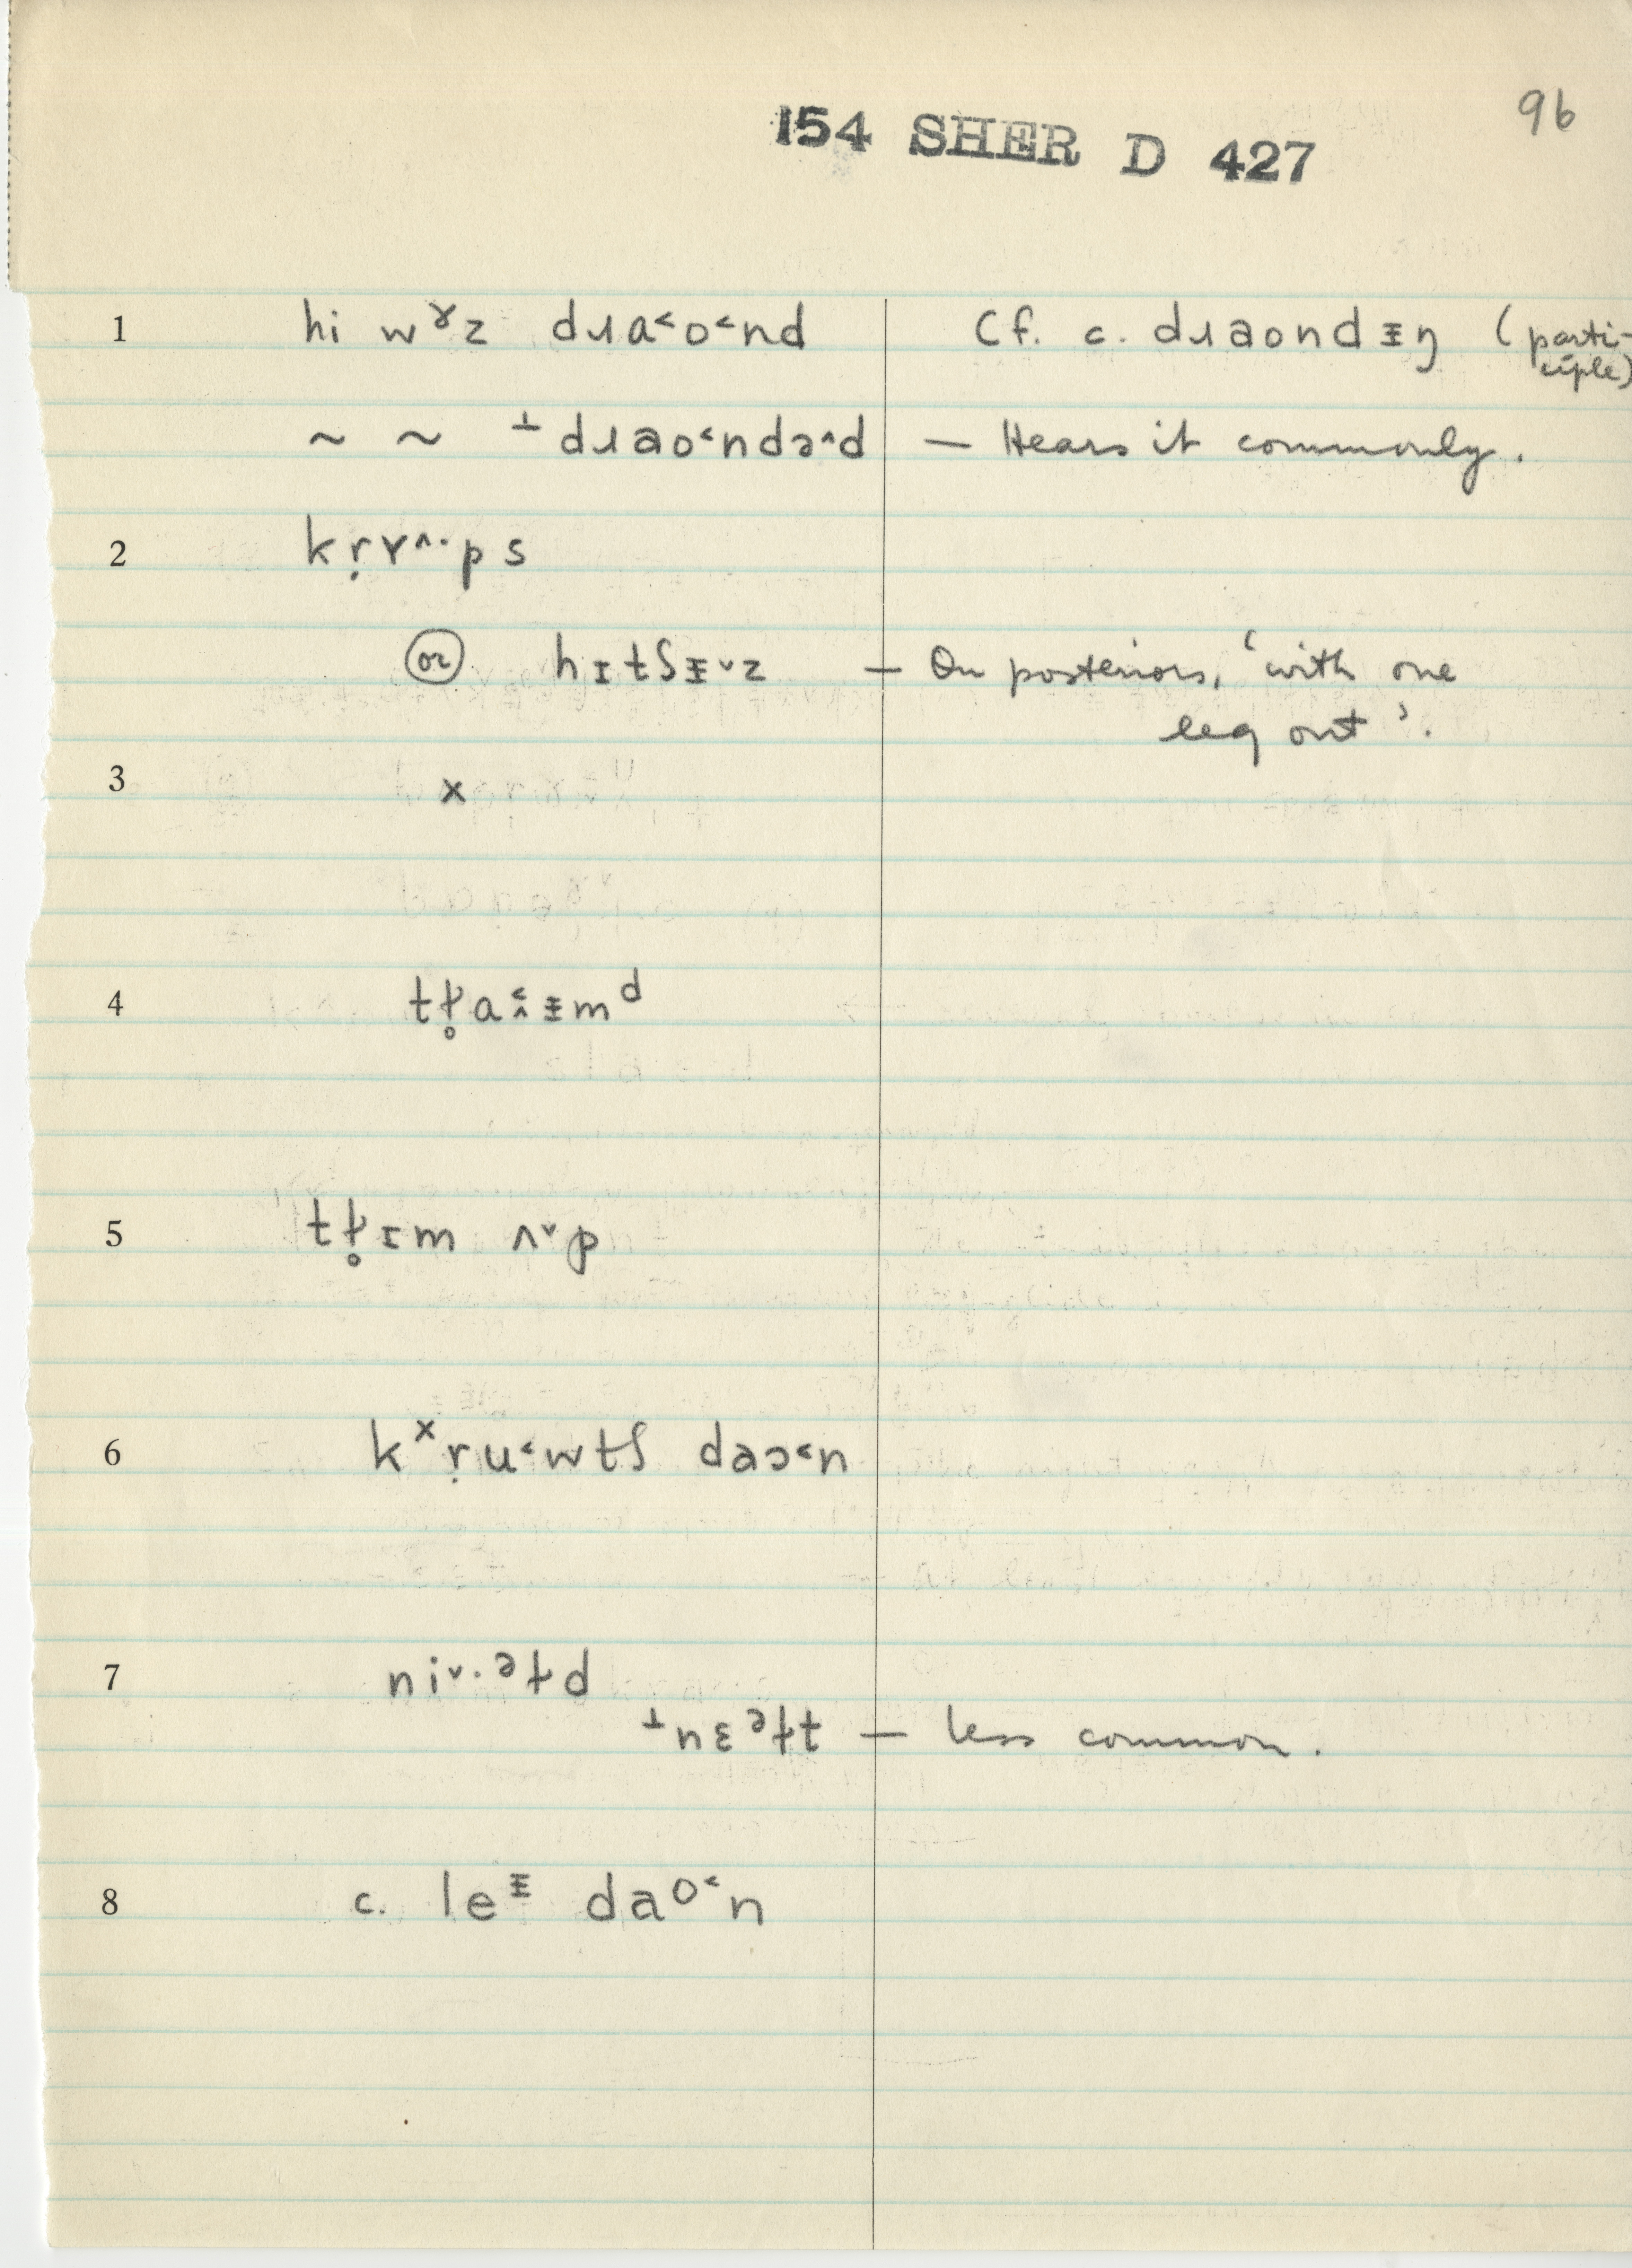 96
154 SHER D 427
1 hi wɤz dɹa˂o˂nd Cf. c. dɹaondᵻŋ (parti-
ciple)
~ ~ ⊥dɹao˂ndə˄d — Hears it commonly.
2 kṛɤ˄·ps
or hɪtʃᵻ˅z — On posteriors, 'with one
leg out'.
3 x
4 tɹ̥a ᵻmᵈ
5 tɹ̥ɪm ʌ˅p
6 kˣṛu˂wtʃ daɔ˂n
7 ni˅·ᵊɫd
⊥nɛᵊɫt — less common.
8 c. leᵻ dao˂n